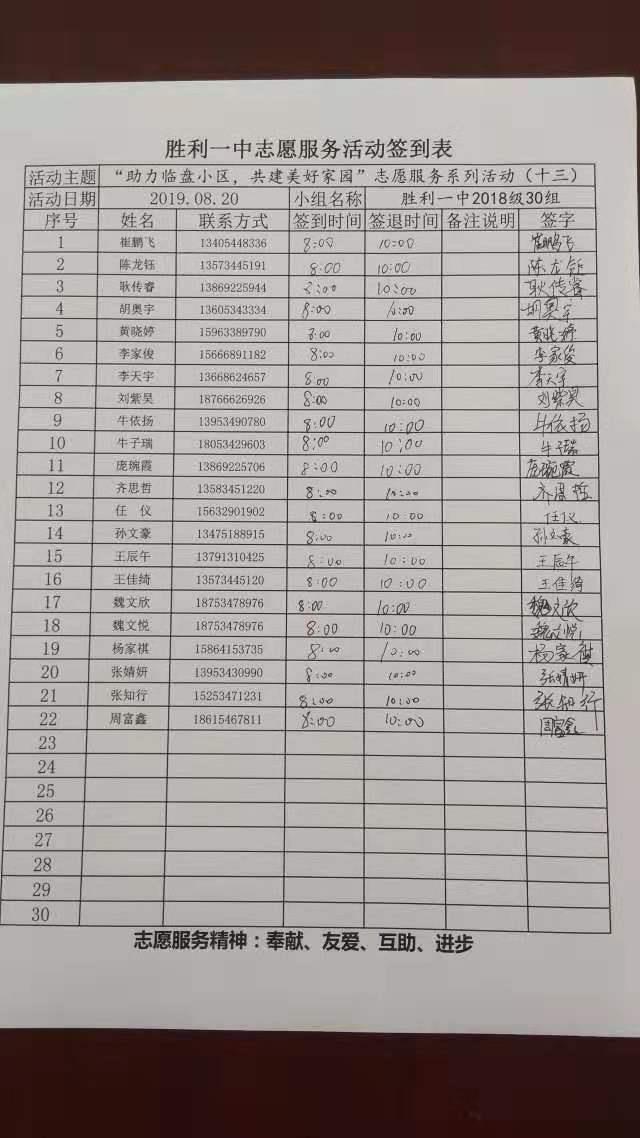 胜利一中志愿服务活动签到表
活动主题 “助力临盘小区，共建美好家园”志愿服务系列活动（十三）
活动日期 2019.08.20 小组名称 胜利一中2018级30组
序号 姓名 联系方式 签到时间 签退时间 备注说明 签字
1 崔鹏飞 13405448336 8:00 10:00 崔鹏飞
2 陈龙钰 13573445191 8:00 10:00 陈龙钰
3 耿传睿 13869225944 8:00 10:00 耿传睿
4 胡奥宇 13605343334 8:00 10:00 胡奥宇
5 黄晓婷 15963389790 8:00 10:00 黄晓婷
6 李家俊 15666891182 8:00 10:00 李家俊
7 李天宇 13668624657 8:00 10:00 李天宇
8 刘紫昊 18766626926 8:00 10:00 刘紫昊
9 牛依扬 13953490780 8:00 10:00 牛依扬
10 牛子瑞 18053429603 8:00 10:00 牛子瑞
11 庞琬霞 13869225706 8:00 10:00 庞琬霞
12 齐思哲 13583451220 8:00 10:00 齐思哲
13 任 仪 15632901902 8:00 10:00 任仪
14 孙文豪 13475188915 8:00 10:00 孙文豪
15 王辰午 13791310425 8:00 10:00 王辰午
16 王佳绮 13573445120 8:00 10:00 王佳绮
17 魏文欣 18753478976 8:00 10:00 魏文欣
18 魏文悦 18753478976 8:00 10:00 魏文悦
19 杨家祺 15864153735 8:00 10:00 杨家祺
20 张婧妍 13953430990 8:00 10:00 张婧妍
21 张知行 15253471231 8:00 10:00 张知行
22 周富鑫 18615467811 8:00 10:00 周富鑫
23
24
25
26
27
28
29
30
志愿服务精神：奉献、友爱、互助、进步